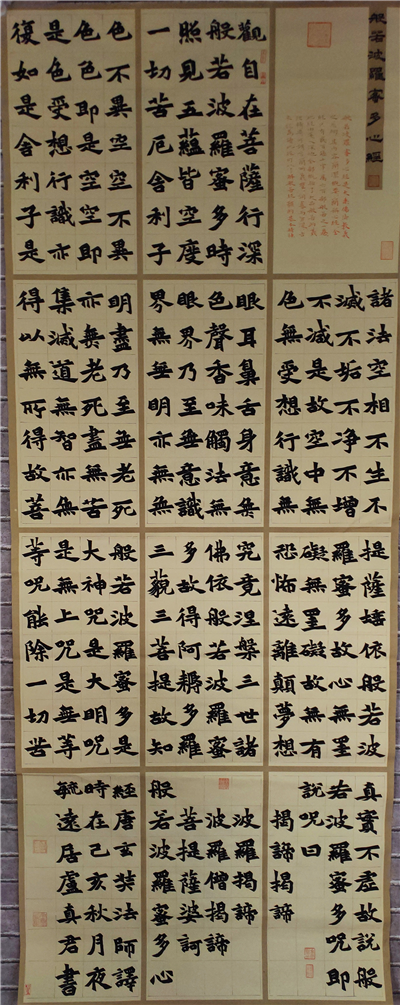 般若波羅蜜多心經
觀自在菩薩行深
般若波羅蜜多時
照見五蘊皆空度
一切苦厄舍利子
色不異空空不異
色色即是空空即
是色受想行識亦
復如是舍利子是
諸法空相不生不
滅不垢不净不增
不滅是故空中無
色無受想行識無
眼耳鼻舌身意無
色聲香味觸法無
眼界乃至無意識
界無無明亦無無
明盡乃至無老死
亦無老死盡無苦
集滅道無智亦無
得以無所得故菩
提薩埵依般若波
羅蜜多故心無罣
礙無罣礙故無有
恐怖遠離顛夢想
究竟涅槃三世諸
佛依般若波羅蜜
多故得阿耨多羅
三藐三菩提故知
般若波羅蜜多是
大神咒是大明咒
是無上咒是無等
等咒能除一切苦
真實不虛故說般
若波羅蜜多咒即
說咒曰
揭諦揭諦
波羅揭諦
波羅僧揭諦
菩提薩婆訶
般若波羅蜜多心
經唐玄奘法師譯
時在己亥秋月夜
毓遠居盧真君書